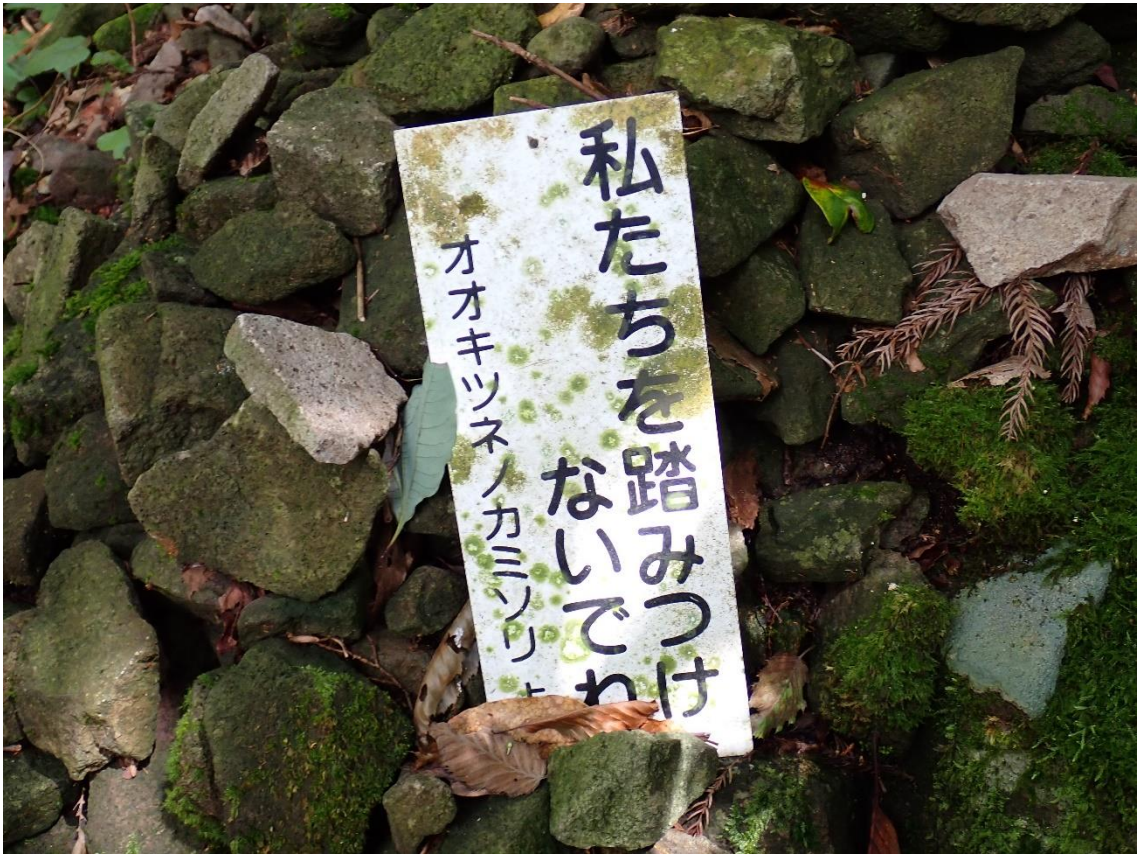 私たちを踏みつけ
ないでね
オオキツネノカミソリよ